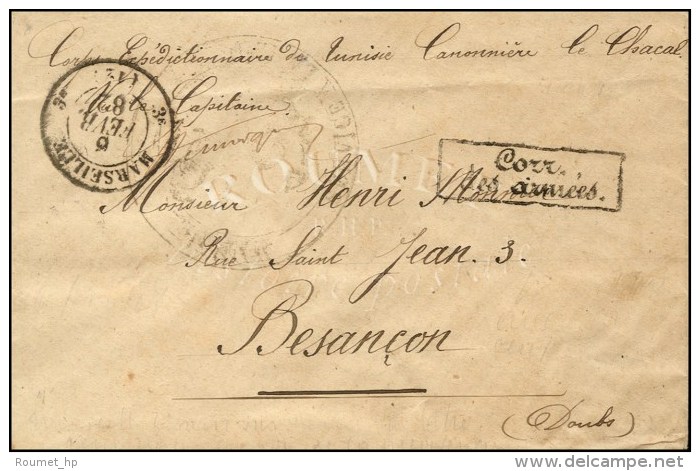 Corps Expéditionnaire de Tunisie Canonnière le Chacal
Vu le Capitaine
MARSEILLE
3e 3e
6
FEVR
82
Corr.
des armées.
ROUMET
Monsieur Henri Monnier
Rue Saint Jean. 3.
Besançon
(Doubs)
© Roumet_hp
delcampe.net